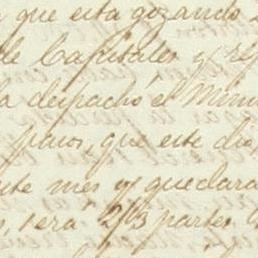 que esta gozando
de Capitales y
despachó el Minis
paros, que este dio
este mes y quedara
, sera 2/3 partes